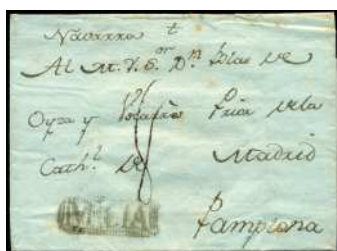 Navarra t
or
Al M. Y. S. Dn Blas de
Oyza y Prior de la
Cath.l de Madrid
8
Pamplona